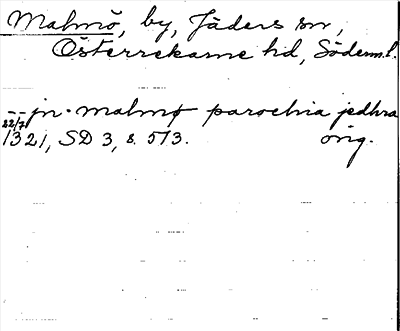 Malmö, by, Jäders sn,
Österrekarne hd, Söderml.
-- jn. malmø parochia jedhra
22/7 1321, SD 3, s. 513. orig.